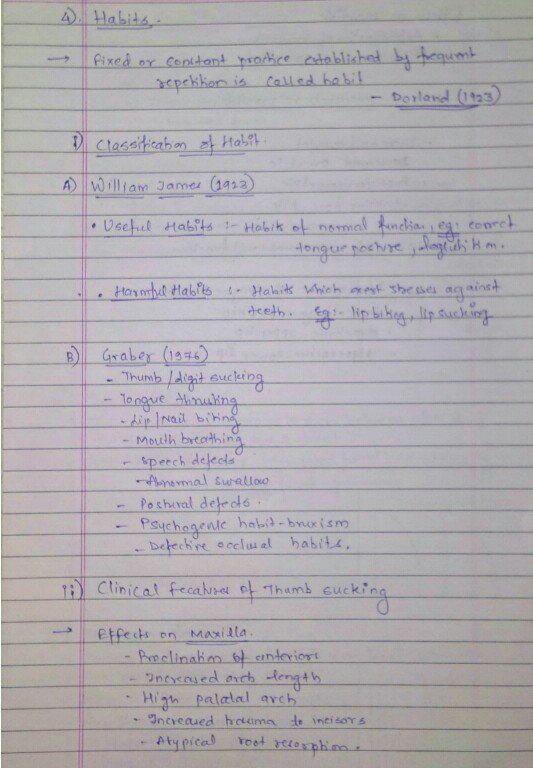 4). Habits.
→ Fixed or constant practice established by frequent
repetition is called habit
- Dorland (1923)
I) Classification of Habit.
A) William James (1923)
• Useful Habits :- Habits of normal function, eg: correct
tongue posture, deglutition.
• Harmful Habits :- Habits which exert stresses against
teeth. Eg:- lip biting, lip sucking
B) Graber (1976)
- Thumb / digit sucking
- Tongue thrusting
- Lip / Nail biting
- Mouth breathing
- Speech defects
- Abnormal swallow
- Postural defects.
- Psychogenic habit - bruxism
- Defective occlusal habits.
ii) Clinical fecatures of Thumb sucking
→ Effects on Maxilla.
- Proclination of anteriors
- Increased arch length
- High palatal arch
- Increased trauma to incisors
- Atypical root resorption.